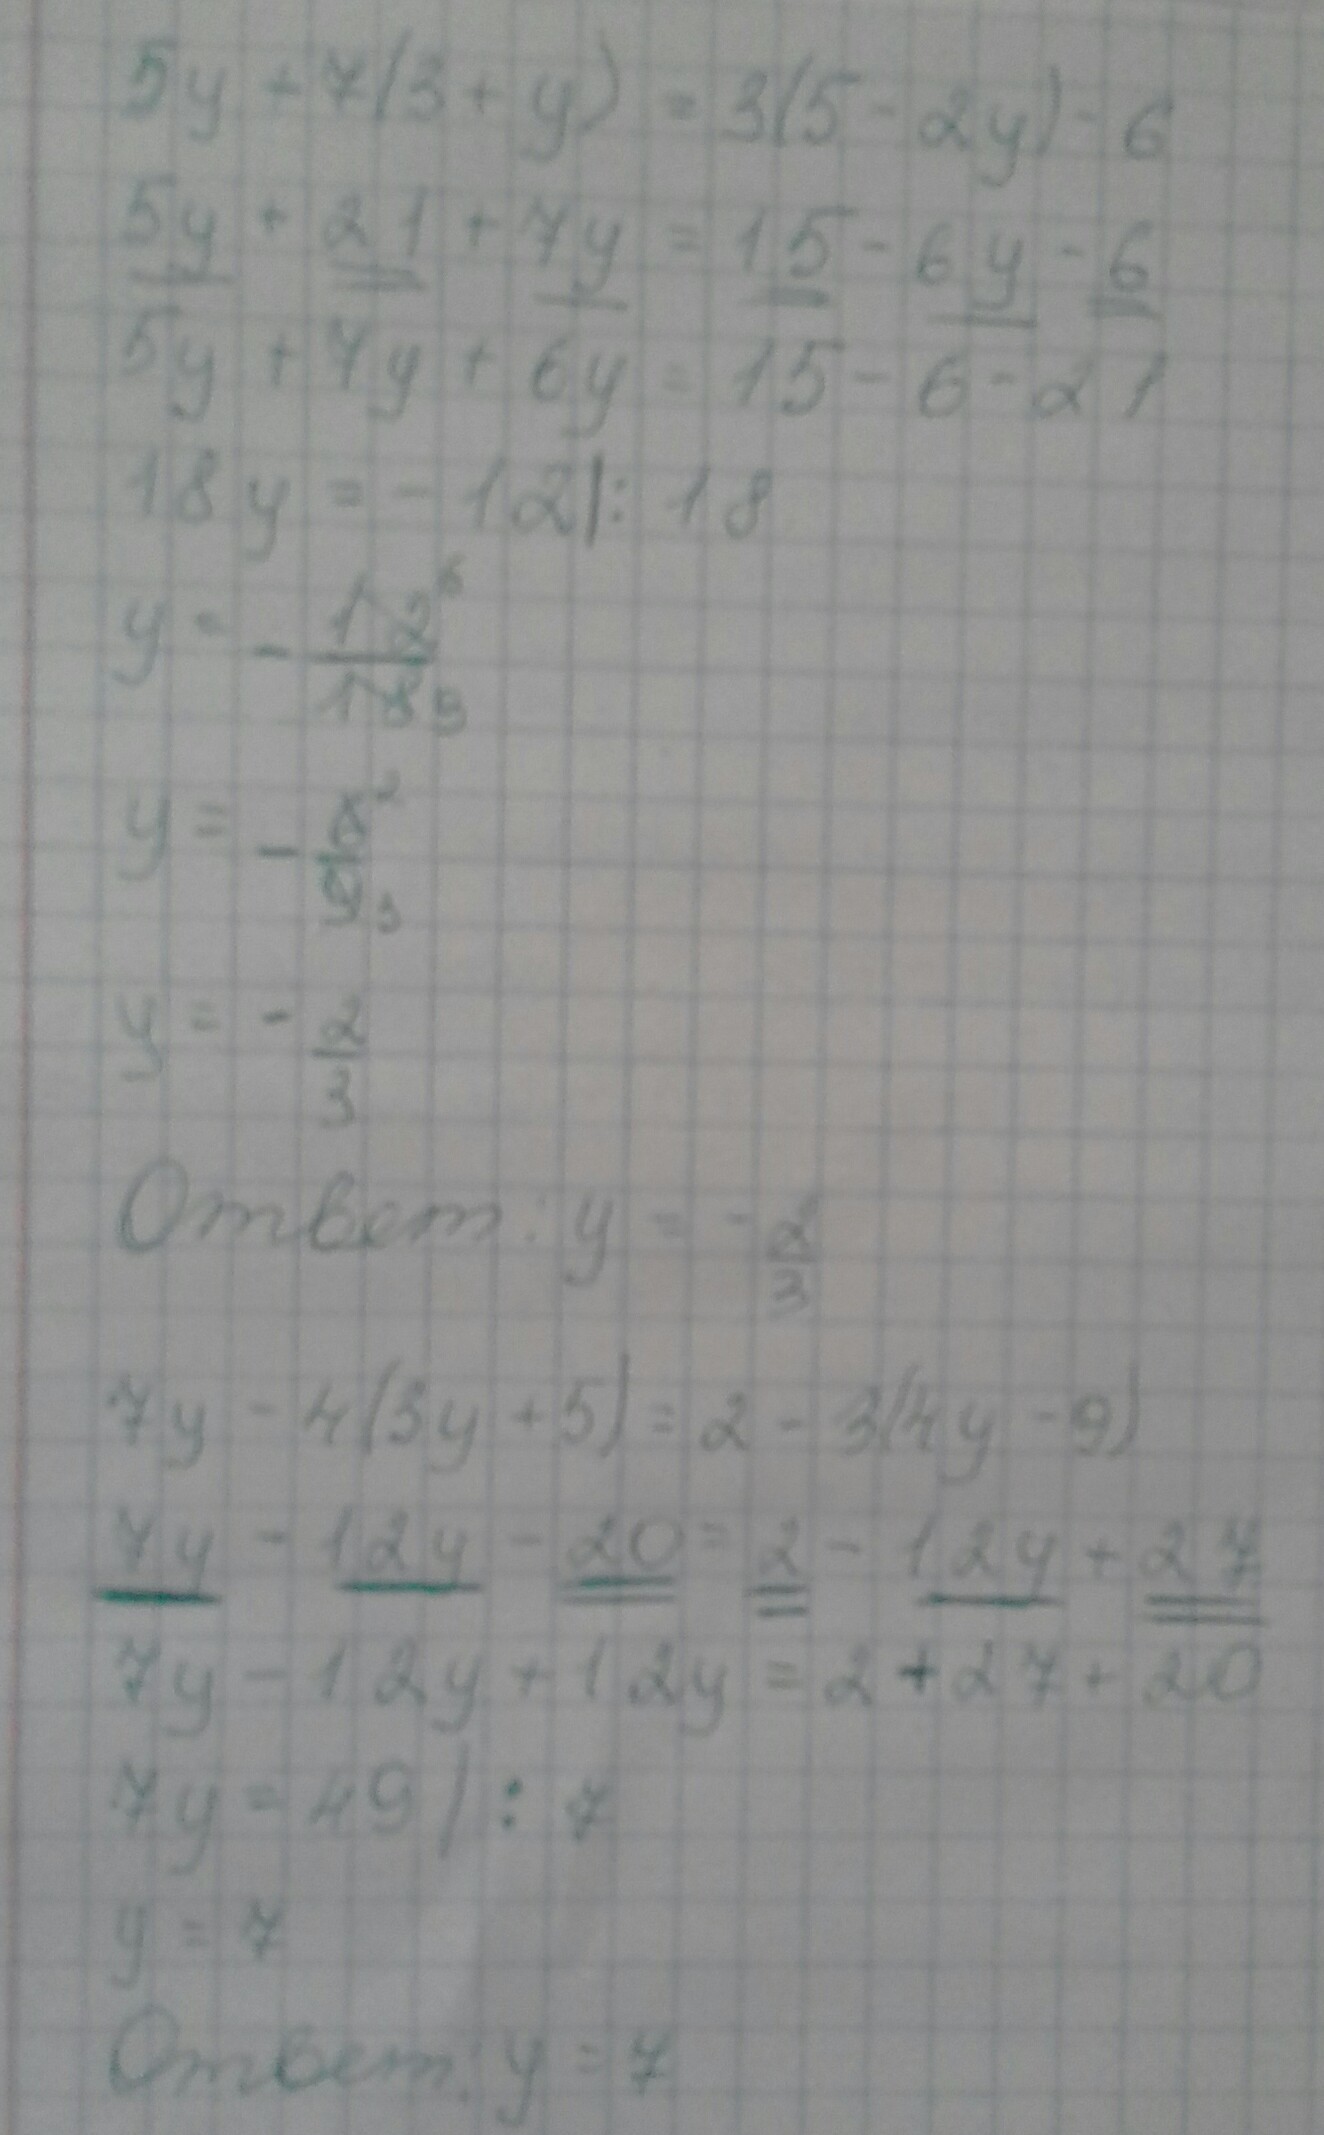 5y + 7(3 + y) = 3(5 - 2y) - 6
5y + 21 + 7y = 15 - 6y - 6
5y + 7y + 6y = 15 - 6 - 21
18y = -12 |: 18
y = - 12 6 / 18 9
y = - 6 2 / 9 3
y = - 2/3
Ответ: y = - 2/3
7y - 4(3y + 5) = 2 - 3(4y - 9)
7y - 12y - 20 = 2 - 12y + 27
7y - 12y + 12y = 2 + 27 + 20
7y = 49 | : 7
y = 7
Ответ: y = 7